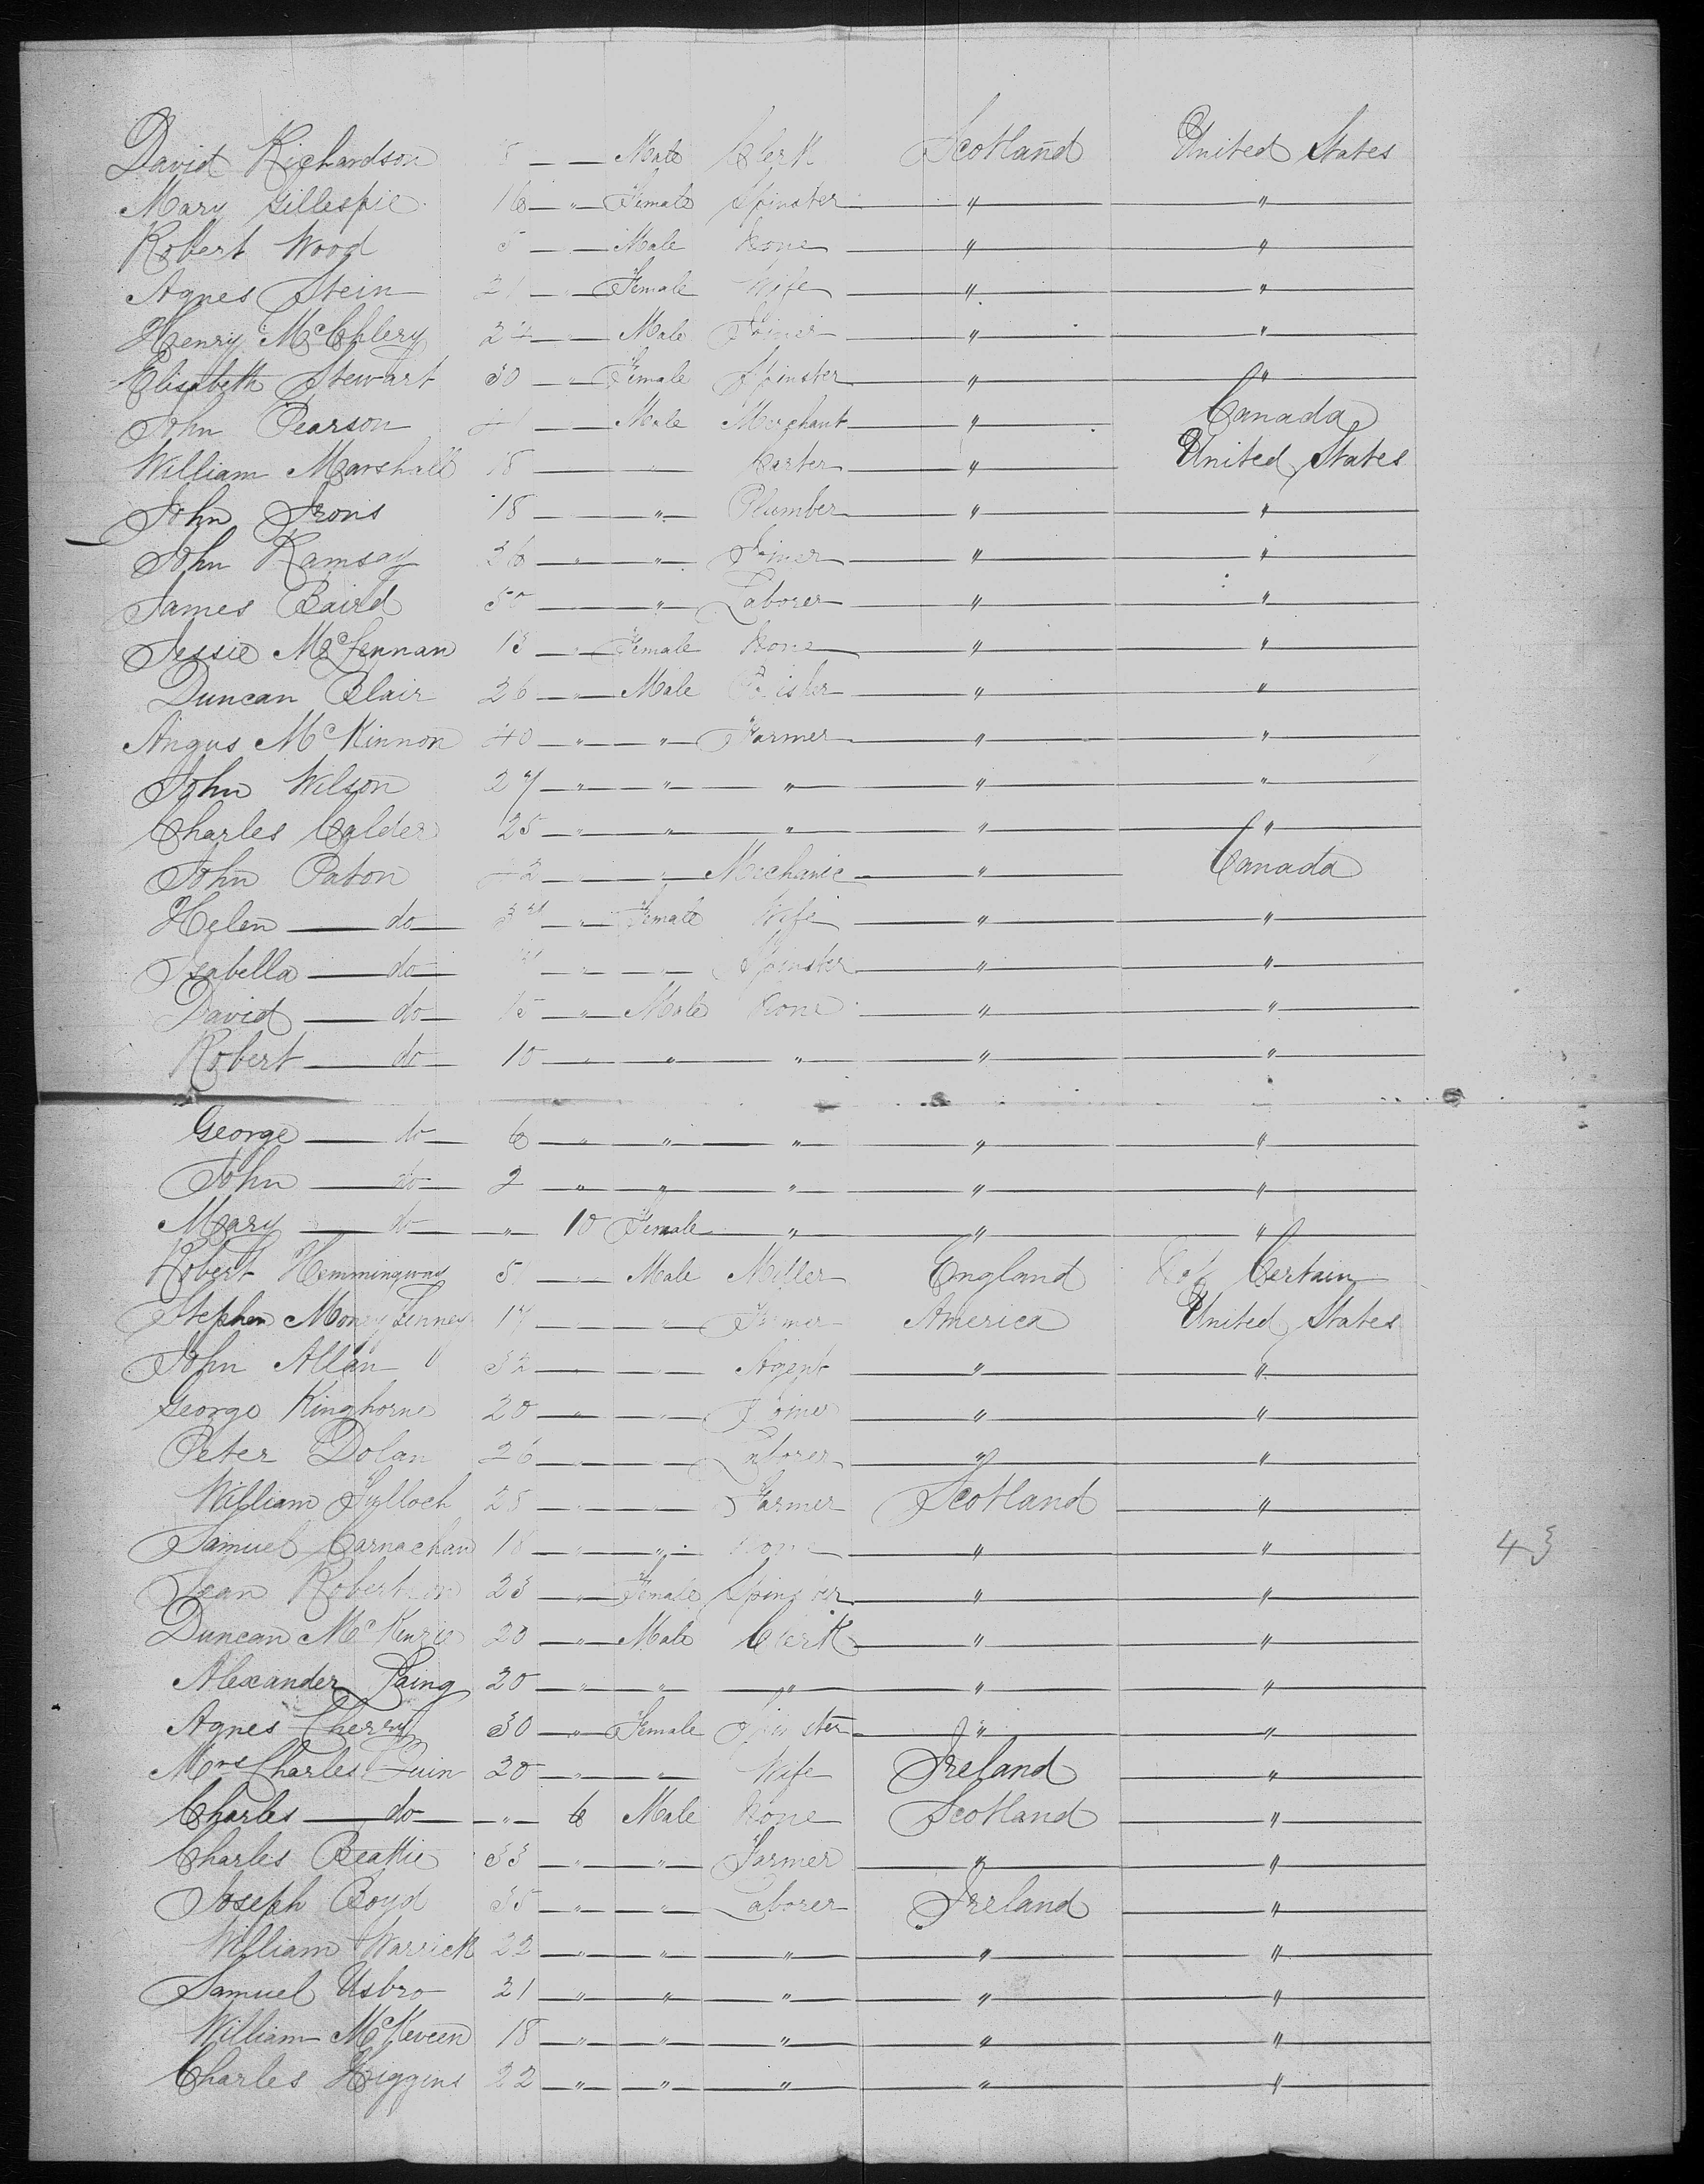 David Richardson — — Male Clerk Scotland United States
Mary Gillespie 16 — " — Female Spinster — " — — " —
Robert Wood 5 — — Male None — " — — " —
Agnes Stein 21 — " — Female Wife — " — — " —
Henry 24 — " — Male Joiner — " — — " —
Elisabeth Stewart 30 — " — Female Spinster — " — — " —
John Pearson — — Male Merchant — " — Canada
William Marshall 18 — " — Carter — " — United States
John Irons 18 — " — Plumber — " — — " —
John Ramsay 26 — " — " — Joiner — " — — " —
James Baird 50 — " — Laborer — " — — " —
Jessie McLennan 13 — " — Female None — " — — " —
Duncan Blair 26 — " — Male — " — — " —
Angus McKinnon 40 — " — " — Farmer — " — — " —
John Wilson 27 — " — " — " — " — — " —
Charles Calder 25 — " — " — " — " — — " —
John Paton 42 — " — " — Mechanic — " — Canada
Helen — do — — " — Female Wife — " — — " —
Isabella — do — — " — " — Spinster — " — — " —
David — do — 15 — " — Male None — " — — " —
Robert — do — 10 — " — " — " — " — — " —
George — do — 6 — " — " — " — " — — " —
John — do — 2 — " — " — " — " — — " —
Mary — do — " — 10 Female — " — " — — " —
Robert Hemmingway — " — Male Miller England Not Certain
Stephen 17 — " — America United States
John Allan 32 — " — Agent — " — — " —
George Kinghorne 20 — " — " — Joiner — " — — " —
Peter Dolan 26 — " — " — Laborer — " — — " —
William 25 — " — " — Farmer Scotland — " —
Samuel Carnachan 18 — " — " — None — " — — " —
Jean Robertson 23 — " — Female Spinster — " — — " —
Duncan McKenzie 20 — " — Male Clerk — " — — " —
Alexander Laing 20 — " — " — " — " — — " —
Agnes Cherry 30 — " — Female Spinster — " — — " —
Mrs Charles Quin 20 — " — " — Wife Ireland — " —
Charles — do — " — 6 Male None Scotland — " —
Charles Beattie 33 — " — " — Farmer — " — — " —
Joseph Boyd 35 — " — " — Laborer Ireland — " —
William Warrick 22 — " — " — " — " — — " —
Samuel Usbro 21 — " — " — " — " — — " —
William McKeveen 18 — " — " — " — " — — " —
Charles Higgins 22 — " — " — " — " — — " —
43